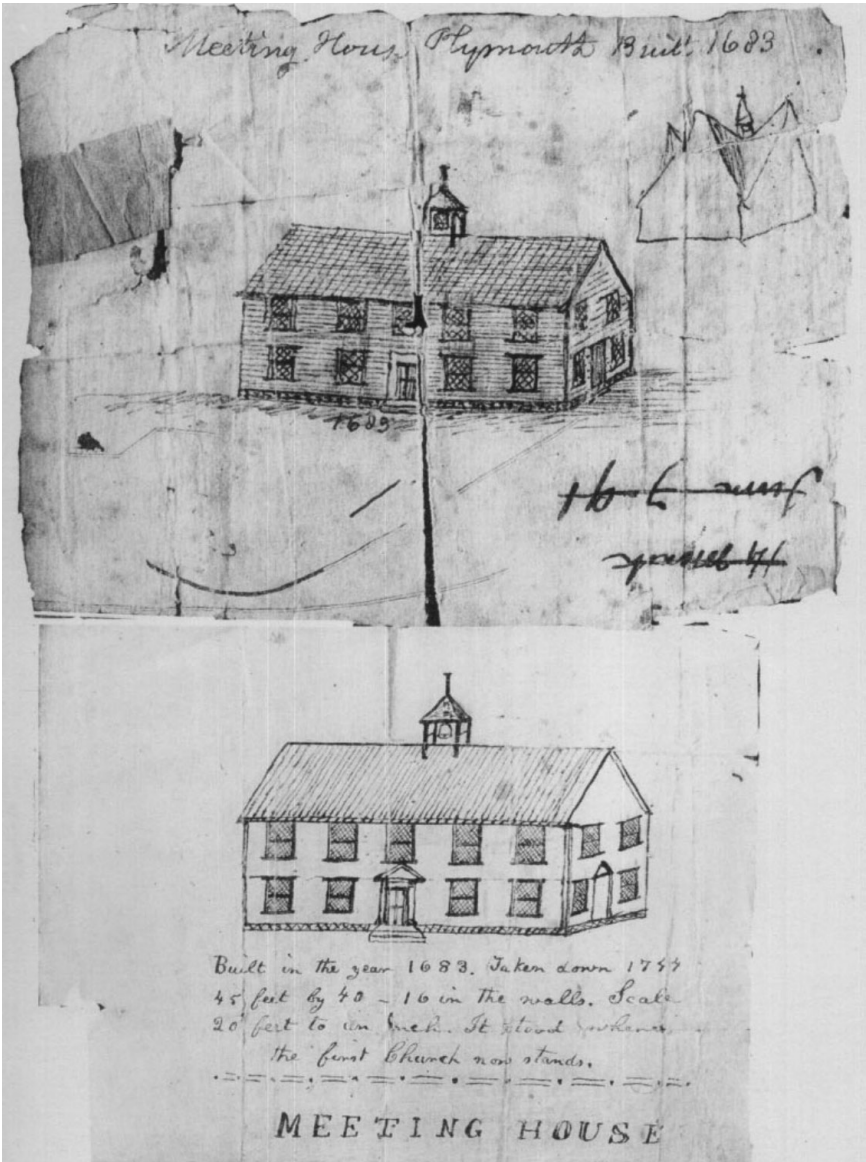 Meeting House Plymouth Built 1683
1683
June 7 91
Built in the year 1683. Taken down 1744
45 feet by 40 - 16 in the walls. Scale
20 feet to an Inch. It stood where
the first Church now stands.
MEETING HOUSE